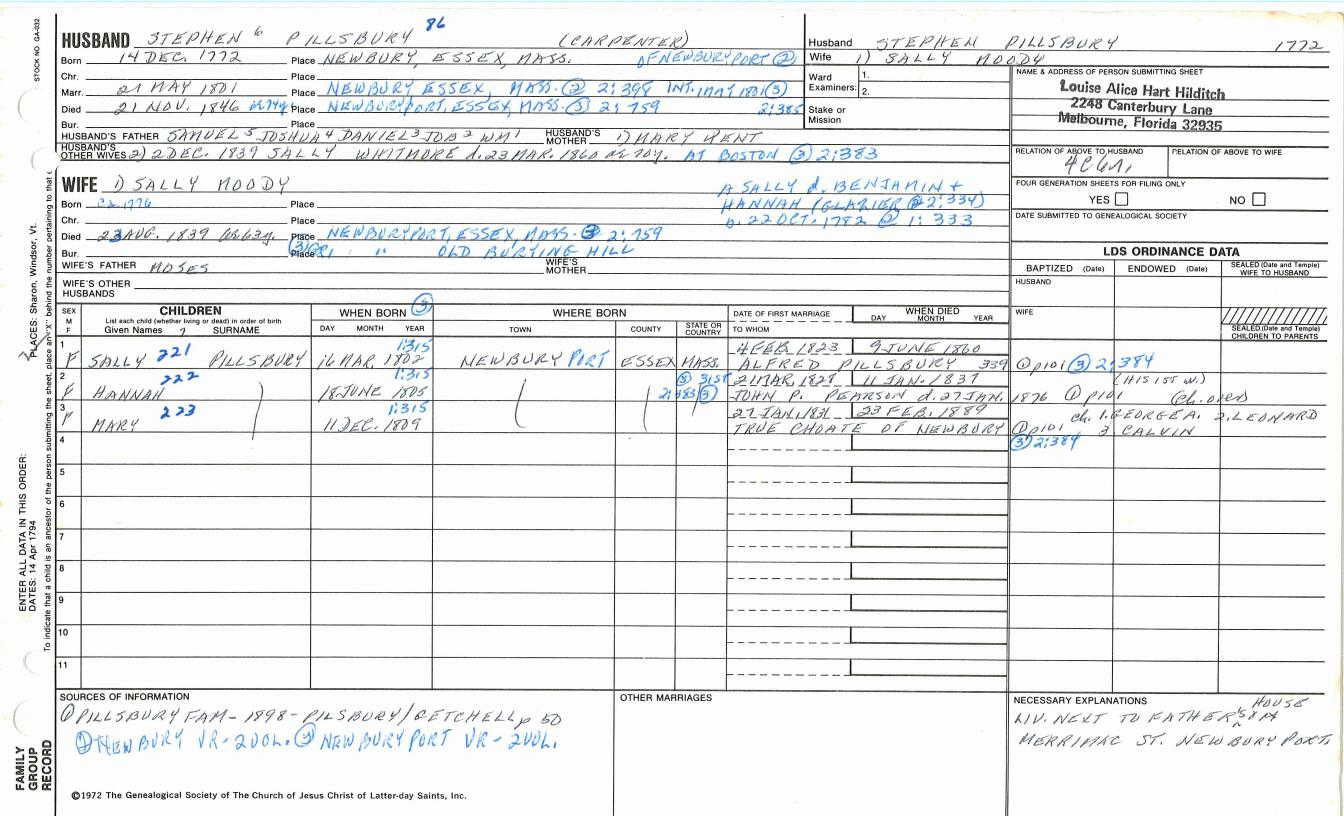 STOCK NO. GA-032
PLACES: Sharon, Windsor, Vt.
ENTER ALL DATA IN THIS ORDER:
DATES: 14 Apr 1794
To indicate that a child is an ancestor of the person submitting the sheet, place an "X" behind the number pertaining to that
FAMILY GROUP RECORD
86
HUSBAND STEPHEN 6 PILLSBURY (CARPENTER)
Born 14 DEC. 1772 Place NEWBURY, ESSEX, MASS. OF NEWBURYPORT (2)
Chr. Place
Marr. 21 MAY 1801 Place NEWBURY ESSEX, MASS. (2) 2:398 INT. 1 MAY 1801 (3)
Died 21 NOV. 1846 Place NEWBURYPORT, ESSEX, MASS. (3) 2:759 2:385
Bur. Place
HUSBAND'S FATHER SAMUEL 5 JOSHUA 4 DANIEL 3 JOB 2 WM 1 HUSBAND'S MOTHER 1) MARY KENT
HUSBAND'S OTHER WIVES 2) 2 DEC. 1839 SALLY WHITMORE d. 23 MAR. 1860 AT BOSTON (3) 2:383
Husband STEPHEN PILLSBURY 1772
Wife 1) SALLY MOODY
Ward Examiners: 1.
2.
Stake or Mission
NAME & ADDRESS OF PERSON SUBMITTING SHEET
Louise Alice Hart Hilditch
2248 Canterbury Lane
Melbourne, Florida 32935
RELATION OF ABOVE TO HUSBAND RELATION OF ABOVE TO WIFE
FOUR GENERATION SHEETS FOR FILING ONLY
YES NO
DATE SUBMITTED TO GENEALOGICAL SOCIETY
WIFE 1) SALLY MOODY
A SALLY d. BENJAMIN +
HANNAH (GLAZIER (2) 2:334)
b. 22 OCT. 1782 (2) 1:333
Born Ca 1776 Place
Chr. Place
Died 23 AUG. 1839 Place NEWBURYPORT, ESSEX, MASS. (3) 2:759
Bur. Place " OLD BURYING HILL
WIFE'S FATHER MOSES WIFE'S MOTHER
WIFE'S OTHER HUSBANDS
LDS ORDINANCE DATA
BAPTIZED (Date) ENDOWED (Date) SEALED (Date and Temple) WIFE TO HUSBAND
HUSBAND
WIFE
SEALED (Date and Temple) CHILDREN TO PARENTS
SEX M F
CHILDREN
List each child (whether living or dead) in order of birth
Given Names 7 SURNAME
WHEN BORN (3)
DAY MONTH YEAR
WHERE BORN
TOWN COUNTY STATE OR COUNTRY
DATE OF FIRST MARRIAGE
TO WHOM
WHEN DIED
DAY MONTH YEAR
1 F SALLY 221 PILLSBURY 1:315 16 MAR. 1802 NEWBURYPORT ESSEX MASS. 4 FEB 1823 9 JUNE 1860
ALFRED PILLSBURY 339 (1) p101 (3) 2:384
2 F HANNAH 222 1:315 18 JUNE 1805 (3) 2:383 (3) 21 MAR. 1827 11 JAN. 1837 (HIS 1ST W.)
JOHN P. PEARSON d. 27 JAN. 1876 (1) p101
3 F MARY 223 1:315 11 DEC. 1809 27 JAN. 1831 23 FEB. 1889 ch. 1. GEORGE A. 2. LEONARD
TRUE CHOATE OF NEWBURY (1) p101 3 CALVIN
(3) 2:384
4
5
6
7
8
9
10
11
SOURCES OF INFORMATION
(1) PILLSBURY FAM- 1898- PILSBURY/GETCHELL p 50
(2) NEWBURY VR- 2 VOL. (3) NEWBURYPORT VR- 2 VOL.
OTHER MARRIAGES
NECESSARY EXPLANATIONS
LIV. NEXT TO FATHER'S HOUSE
MERRIMAC ST. NEWBURYPORT
©1972 The Genealogical Society of The Church of Jesus Christ of Latter-day Saints, Inc.